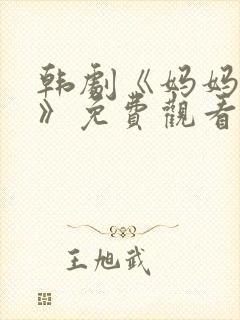 韩剧《妈妈
》免費觀看
王旭武